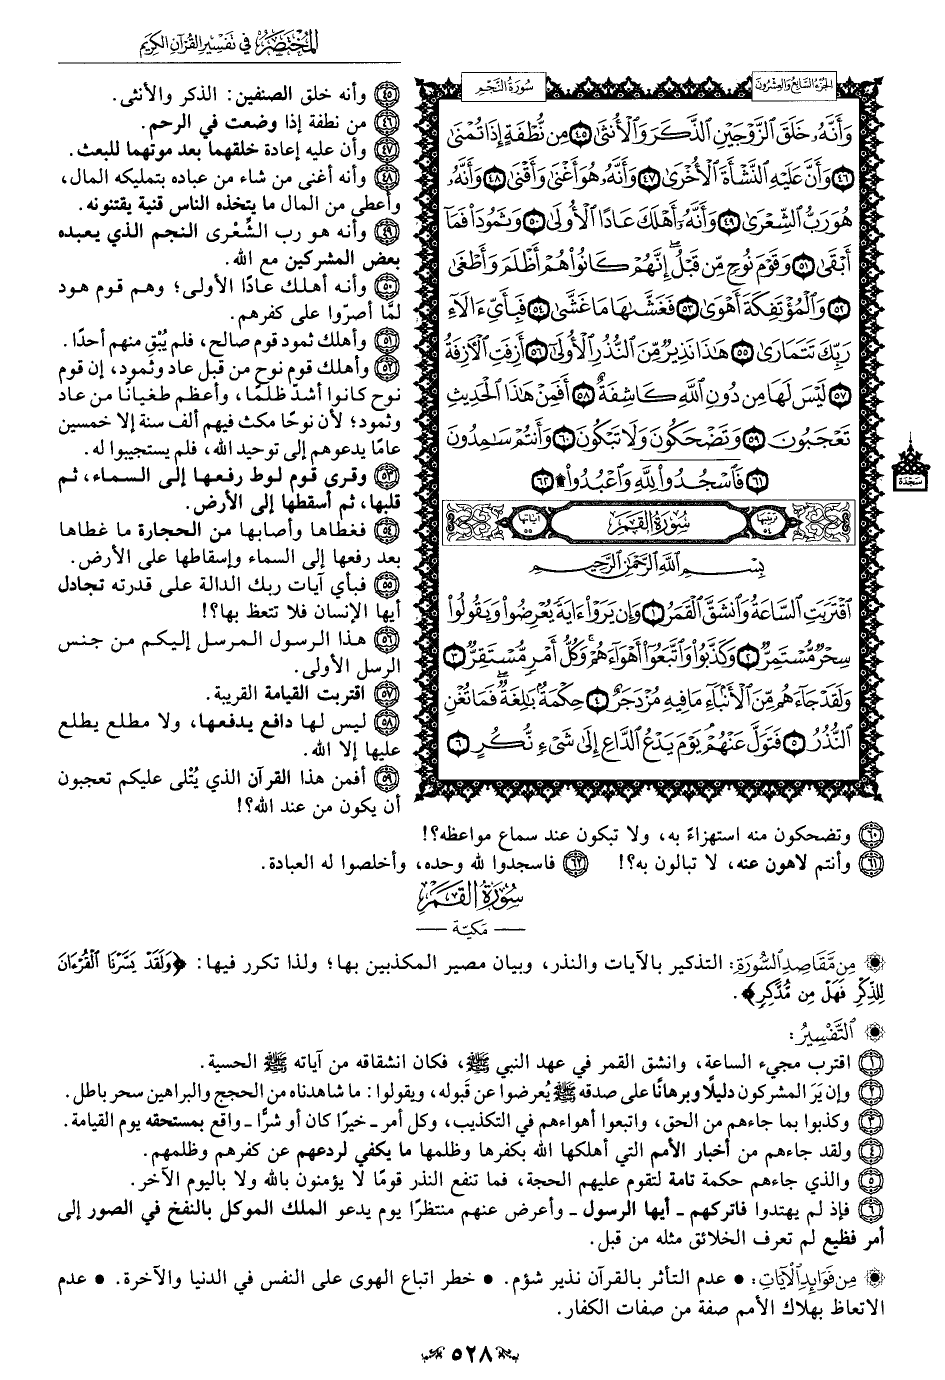 المختصر في تفسير القرآن الكريم
الجزء السابع والعشرون
سورة النجم
وَأَنَّهُۥ خَلَقَ ٱلزَّوْجَيْنِ ٱلذَّكَرَ وَٱلْأُنثَىٰ ٤٥ مِن نُّطْفَةٍ إِذَا تُمْنَىٰ
٤٦ وَأَنَّ عَلَيْهِ ٱلنَّشْأَةَ ٱلْأُخْرَىٰ ٤٧ وَأَنَّهُۥ هُوَ أَغْنَىٰ وَأَقْنَىٰ ٤٨ وَأَنَّهُۥ
هُوَ رَبُّ ٱلشِّعْرَىٰ ٤٩ وَأَنَّهُۥٓ أَهْلَكَ عَادًا ٱلْأُولَىٰ ٥٠ وَثَمُودَا۟ فَمَآ
أَبْقَىٰ ٥١ وَقَوْمَ نُوحٍ مِّن قَبْلُ ۖ إِنَّهُمْ كَانُوا۟ هُمْ أَظْلَمَ وَأَطْغَىٰ
٥٢ وَٱلْمُؤْتَفِكَةَ أَهْوَىٰ ٥٣ فَغَشَّىٰهَا مَا غَشَّىٰ ٥٤ فَبِأَىِّ ءَالَآءِ
رَبِّكَ تَتَمَارَىٰ ٥٥ هَٰذَا نَذِيرٌ مِّنَ ٱلنُّذُرِ ٱلْأُولَىٰٓ ٥٦ أَزِفَتِ ٱلْءَازِفَةُ
٥٧ لَيْسَ لَهَا مِن دُونِ ٱللَّهِ كَاشِفَةٌ ٥٨ أَفَمِنْ هَٰذَا ٱلْحَدِيثِ
تَعْجَبُونَ ٥٩ وَتَضْحَكُونَ وَلَا تَبْكُونَ ٦٠ وَأَنتُمْ سَٰمِدُونَ
٦١ فَٱسْجُدُوا۟ لِلَّهِ وَٱعْبُدُوا۟ ۩ ٦٢
سجدة
ترتيبها ٥٤ سُورَةُ القَمَرِ آياتها ٥٥
بِسْمِ ٱللَّهِ ٱلرَّحْمَٰنِ ٱلرَّحِيمِ
ٱقْتَرَبَتِ ٱلسَّاعَةُ وَٱنشَقَّ ٱلْقَمَرُ ١ وَإِن يَرَوْا۟ ءَايَةً يُعْرِضُوا۟ وَيَقُولُوا۟
سِحْرٌ مُّسْتَمِرٌّ ٢ وَكَذَّبُوا۟ وَٱتَّبَعُوٓا۟ أَهْوَآءَهُمْ ۚ وَكُلُّ أَمْرٍ مُّسْتَقِرٌّ ٣
وَلَقَدْ جَآءَهُم مِّنَ ٱلْأَنۢبَآءِ مَا فِيهِ مُزْدَجَرٌ ٤ حِكْمَةٌۢ بَٰلِغَةٌ ۖ فَمَا تُغْنِ
ٱلنُّذُرُ ٥ فَتَوَلَّ عَنْهُمْ ۘ يَوْمَ يَدْعُ ٱلدَّاعِ إِلَىٰ شَىْءٍ نُّكُرٍ ٦
٤٥ وأنه خلق الصنفين: الذكر والأنثى.
٤٦ من نطفة إذا وضعت في الرحم.
٤٧ وأن عليه إعادة خلقهما بعد موتهما للبعث.
٤٨ وأنه أغنى من شاء من عباده بتمليكه المال،
وأعطى من المال ما يتخذه الناس قنية يقتنونه.
٤٩ وأنه هو رب الشِّعْرى النجم الذي يعبده
بعض المشركين مع الله.
٥٠ وأنه أهلك عادًا الأولى؛ وهم قوم هود
لمَّا أصرّوا على كفرهم.
٥١ وأهلك ثمود قوم صالح، فلم يُبْقِ منهم أحدًا.
٥٢ وأهلك قوم نوح من قبل عاد وثمود، إن قوم
نوح كانوا أشدّ ظلمًا، وأعظم طغيانًا من عاد
وثمود؛ لأن نوحًا مكث فيهم ألف سنة إلا خمسين
عامًا يدعوهم إلى توحيد الله، فلم يستجيبوا له.
٥٣ وقرى قوم لوط رفعها إلى السماء، ثم
قلبها، ثم أسقطها إلى الأرض.
٥٤ فغطاها وأصابها من الحجارة ما غطاها
بعد رفعها إلى السماء وإسقاطها على الأرض.
٥٥ فبأي آيات ربك الدالة على قدرته تجادل
أيها الإنسان فلا تتعظ بها؟!
٥٦ هذا الرسول المرسل إليكم من جنس
الرسل الأولى.
٥٧ اقتربت القيامة القريبة.
٥٨ ليس لها دافع يدفعها، ولا مطلع يطلع
عليها إلا الله.
٥٩ أفمن هذا القرآن الذي يُتْلى عليكم تعجبون
أن يكون من عند الله؟!
٦٠ وتضحكون منه استهزاءً به، ولا تبكون عند سماع مواعظه؟!
٦١ وأنتم لاهون عنه، لا تبالون به؟! ٦٢ فاسجدوا لله وحده، وأخلصوا له العبادة.
سُورَةُ القَمَرِ
— مكية —
مِن مَّقَاصِدِ السُّورَةِ: التذكير بالآيات والنذر، وبيان مصير المكذبين بها؛ ولذا تكرر فيها: ﴿وَلَقَدْ يَسَّرْنَا ٱلْقُرْءَانَ
لِلذِّكْرِ فَهَلْ مِن مُّدَّكِرٍ﴾.
التَّفْسِيرُ:
١ اقترب مجيء الساعة، وانشق القمر في عهد النبي ﷺ، فكان انشقاقه من آياته ﷺ الحسية.
٢ وإن يَرَ المشركون دليلًا وبرهانًا على صدقه ﷺ يُعرضوا عن قبوله، ويقولوا: ما شاهدناه من الحجج والبراهين سحر باطل.
٣ وكذبوا بما جاءهم من الحق، واتبعوا أهواءهم في التكذيب، وكل أمر - خيرًا كان أو شرًّا - واقع بمستحقه يوم القيامة.
٤ ولقد جاءهم من أخبار الأمم التي أهلكها الله بكفرها وظلمها ما يكفي لردعهم عن كفرهم وظلمهم.
٥ والذي جاءهم حكمة تامة لتقوم عليهم الحجة، فما تنفع النذر قومًا لا يؤمنون بالله ولا باليوم الآخر.
٦ فإذ لم يهتدوا فاتركهم - أيها الرسول - وأعرض عنهم منتظرًا يوم يدعو الملك الموكل بالنفخ في الصور إلى
أمر فظيع لم تعرف الخلائق مثله من قبل.
مِن فَوَائِدِ الآيَاتِ: • عدم التأثر بالقرآن نذير شؤم. • خطر اتباع الهوى على النفس في الدنيا والآخرة. • عدم
الاتعاظ بهلاك الأمم صفة من صفات الكفار.
٥٢٨